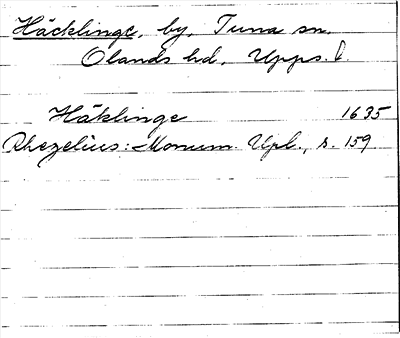 Häcklinge, by, Tuna sn.
Olands hd, Upps. l.
Häklinge 1635
Rhezelius: Monum. Upl., s. 159